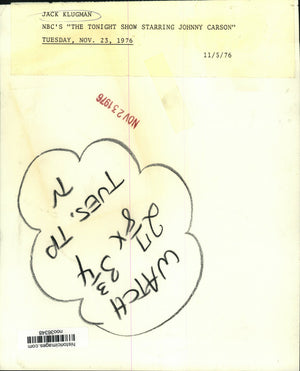 JACK KLUGMAN
NBC'S "THE TONIGHT SHOW STARRING JOHNNY CARSON"
TUESDAY, NOV. 23, 1976
11/5/76
NOV 23 1976
WATCH
2 7/8 X 3 3/4
TUES. TP
TV
historicimages.com